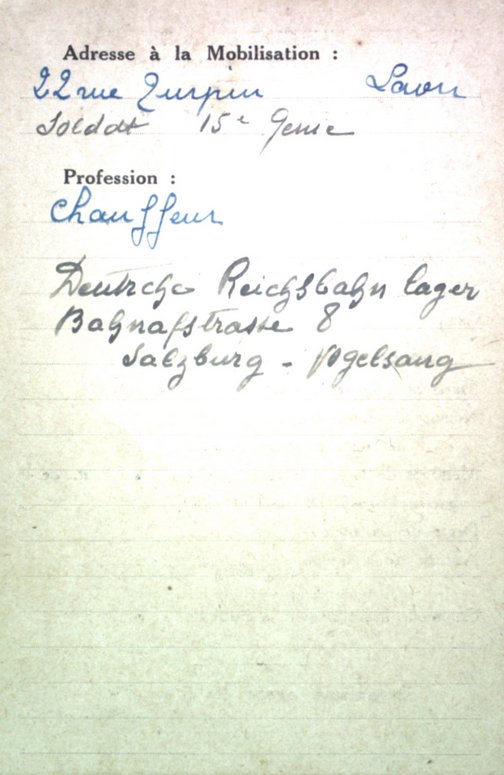 Adresse à la Mobilisation :
22 rue Turpin Laon
Soldat 15e Genie
Profession :
Chauffeur
Deutsche Reichsbahn lager
Bahnafstrasse 8
Salzburg -